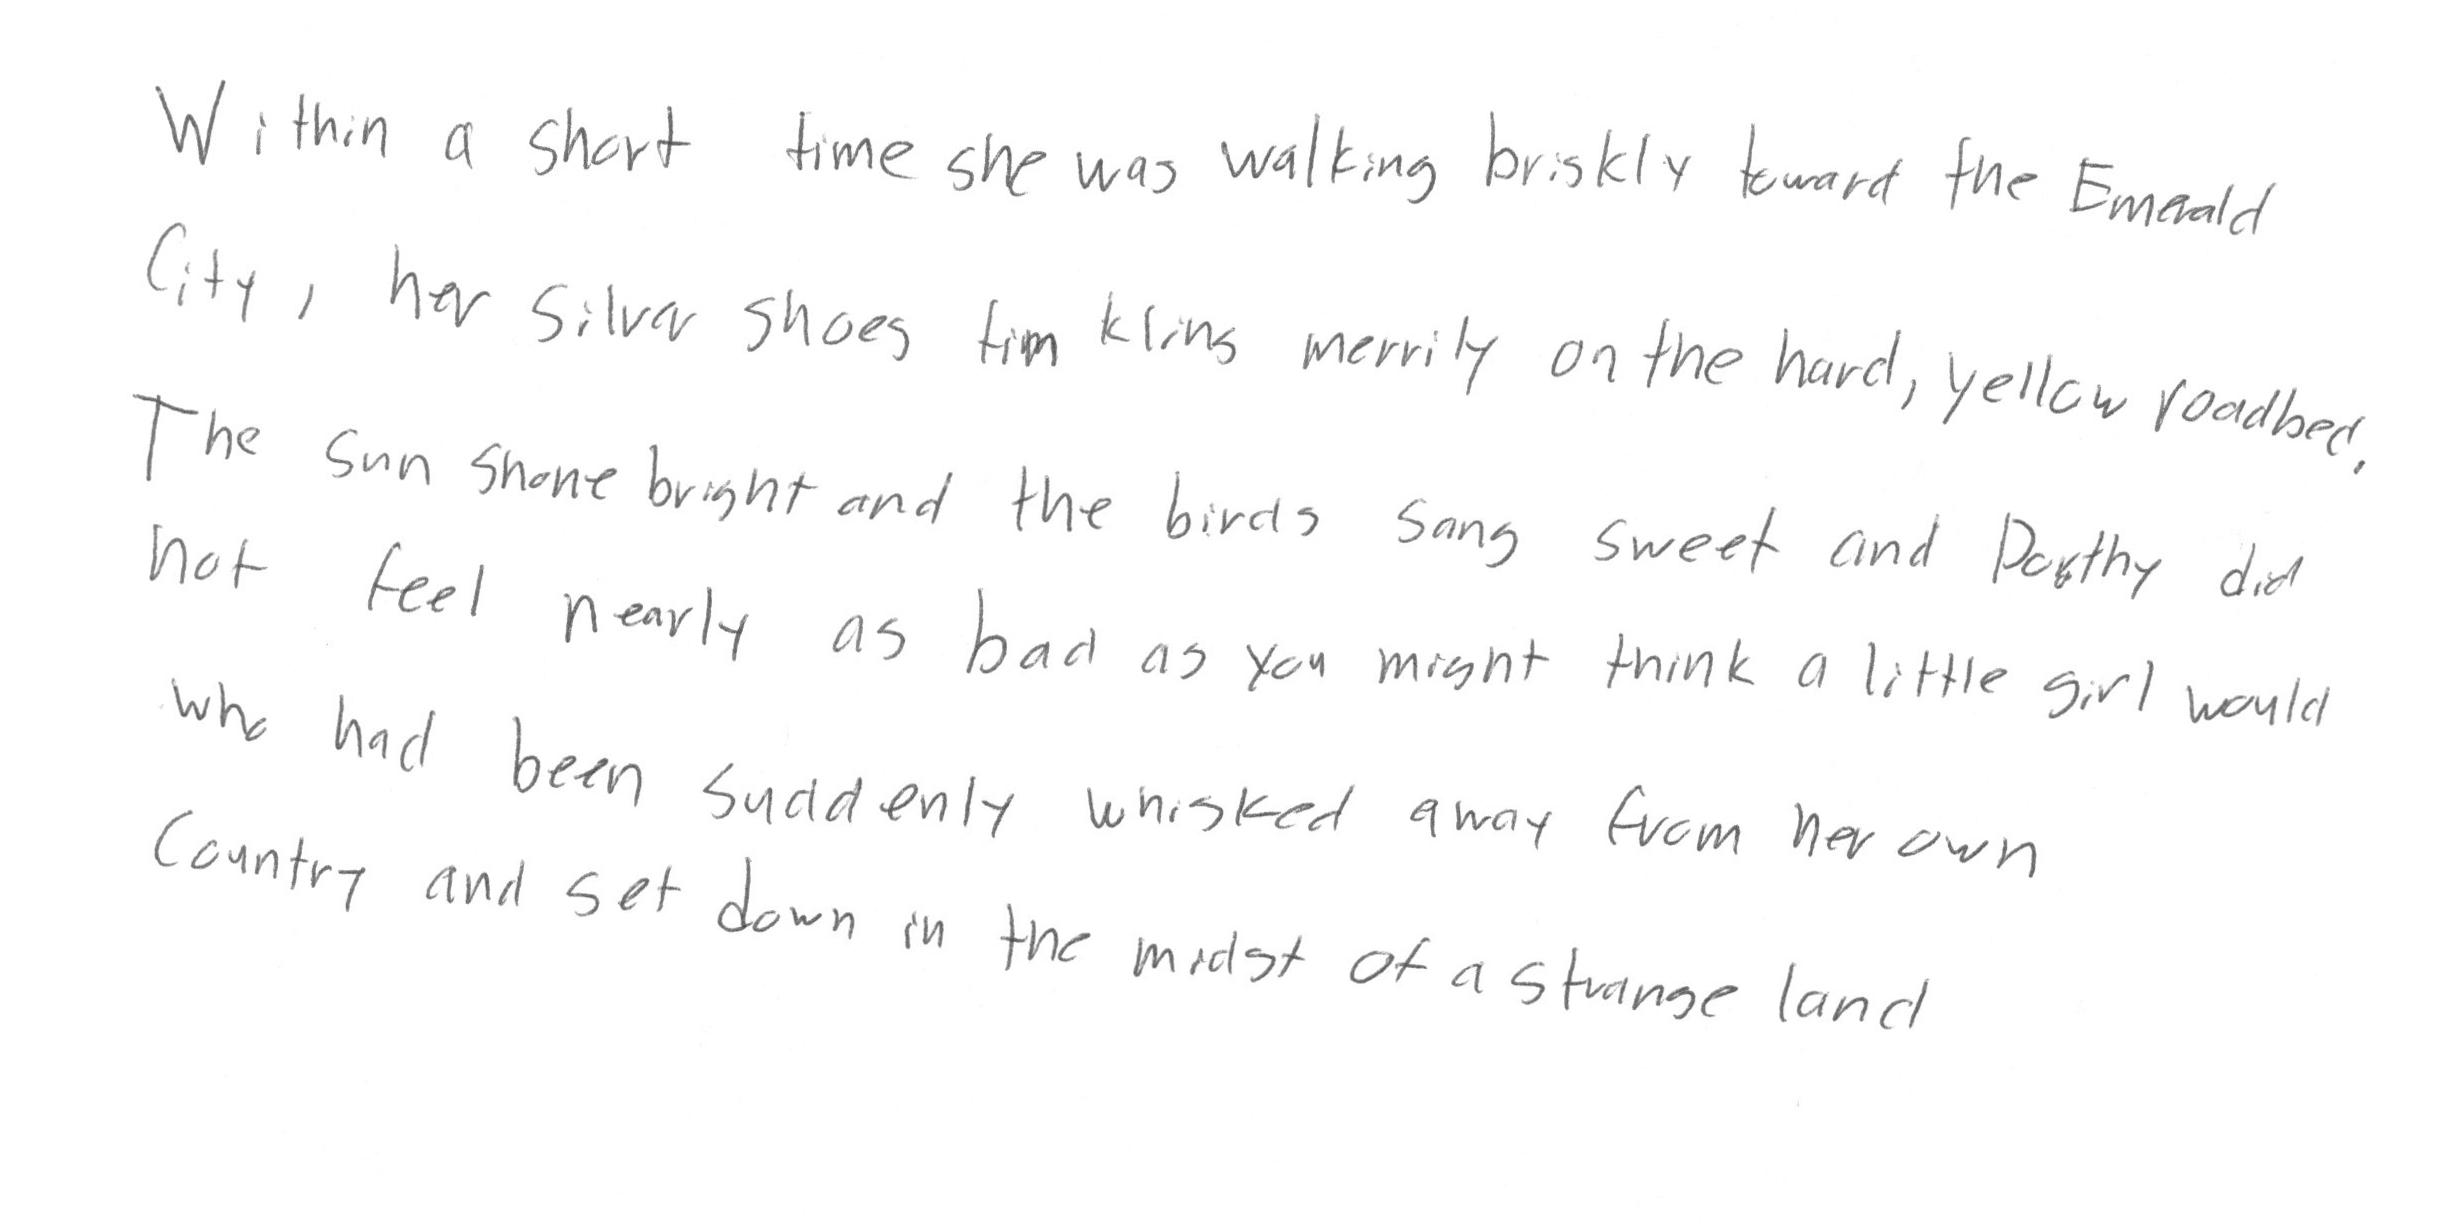 Within a short time she was walking briskly toward the Emerald
City, her silver shoes tim kling merrily on the hard, yellow roadbed.
The sun shone bright and the birds sang sweet and Dorthy did
not feel nearly as bad as you might think a little girl would
who had been suddenly whisked away from her own
Country and set down in the midst of a strange land